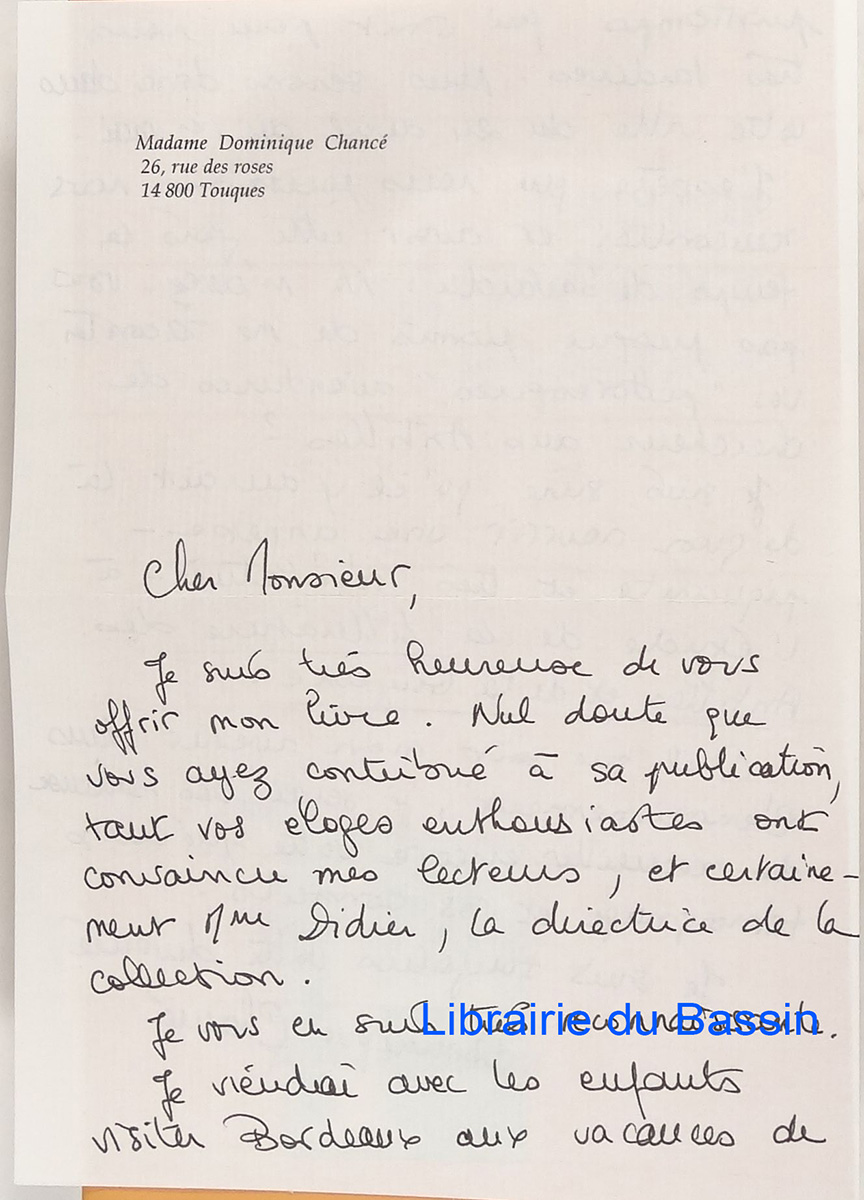 Madame Dominique Chancé
26, rue des roses
14 800 Touques
Cher Monsieur,
Je suis très heureuse de vous
offrir mon livre. Nul doute que
vous ayez contribué à sa publication,
tant vos éloges enthousiastes ont
convaincu mes lecteurs, et certaine-
ment Mme Didier, la directrice de la
collection.
Je vous en suis très reconnaissante.
Librairie du Bassin
Je viendrai avec les enfants
visiter Bordeaux aux vacances de